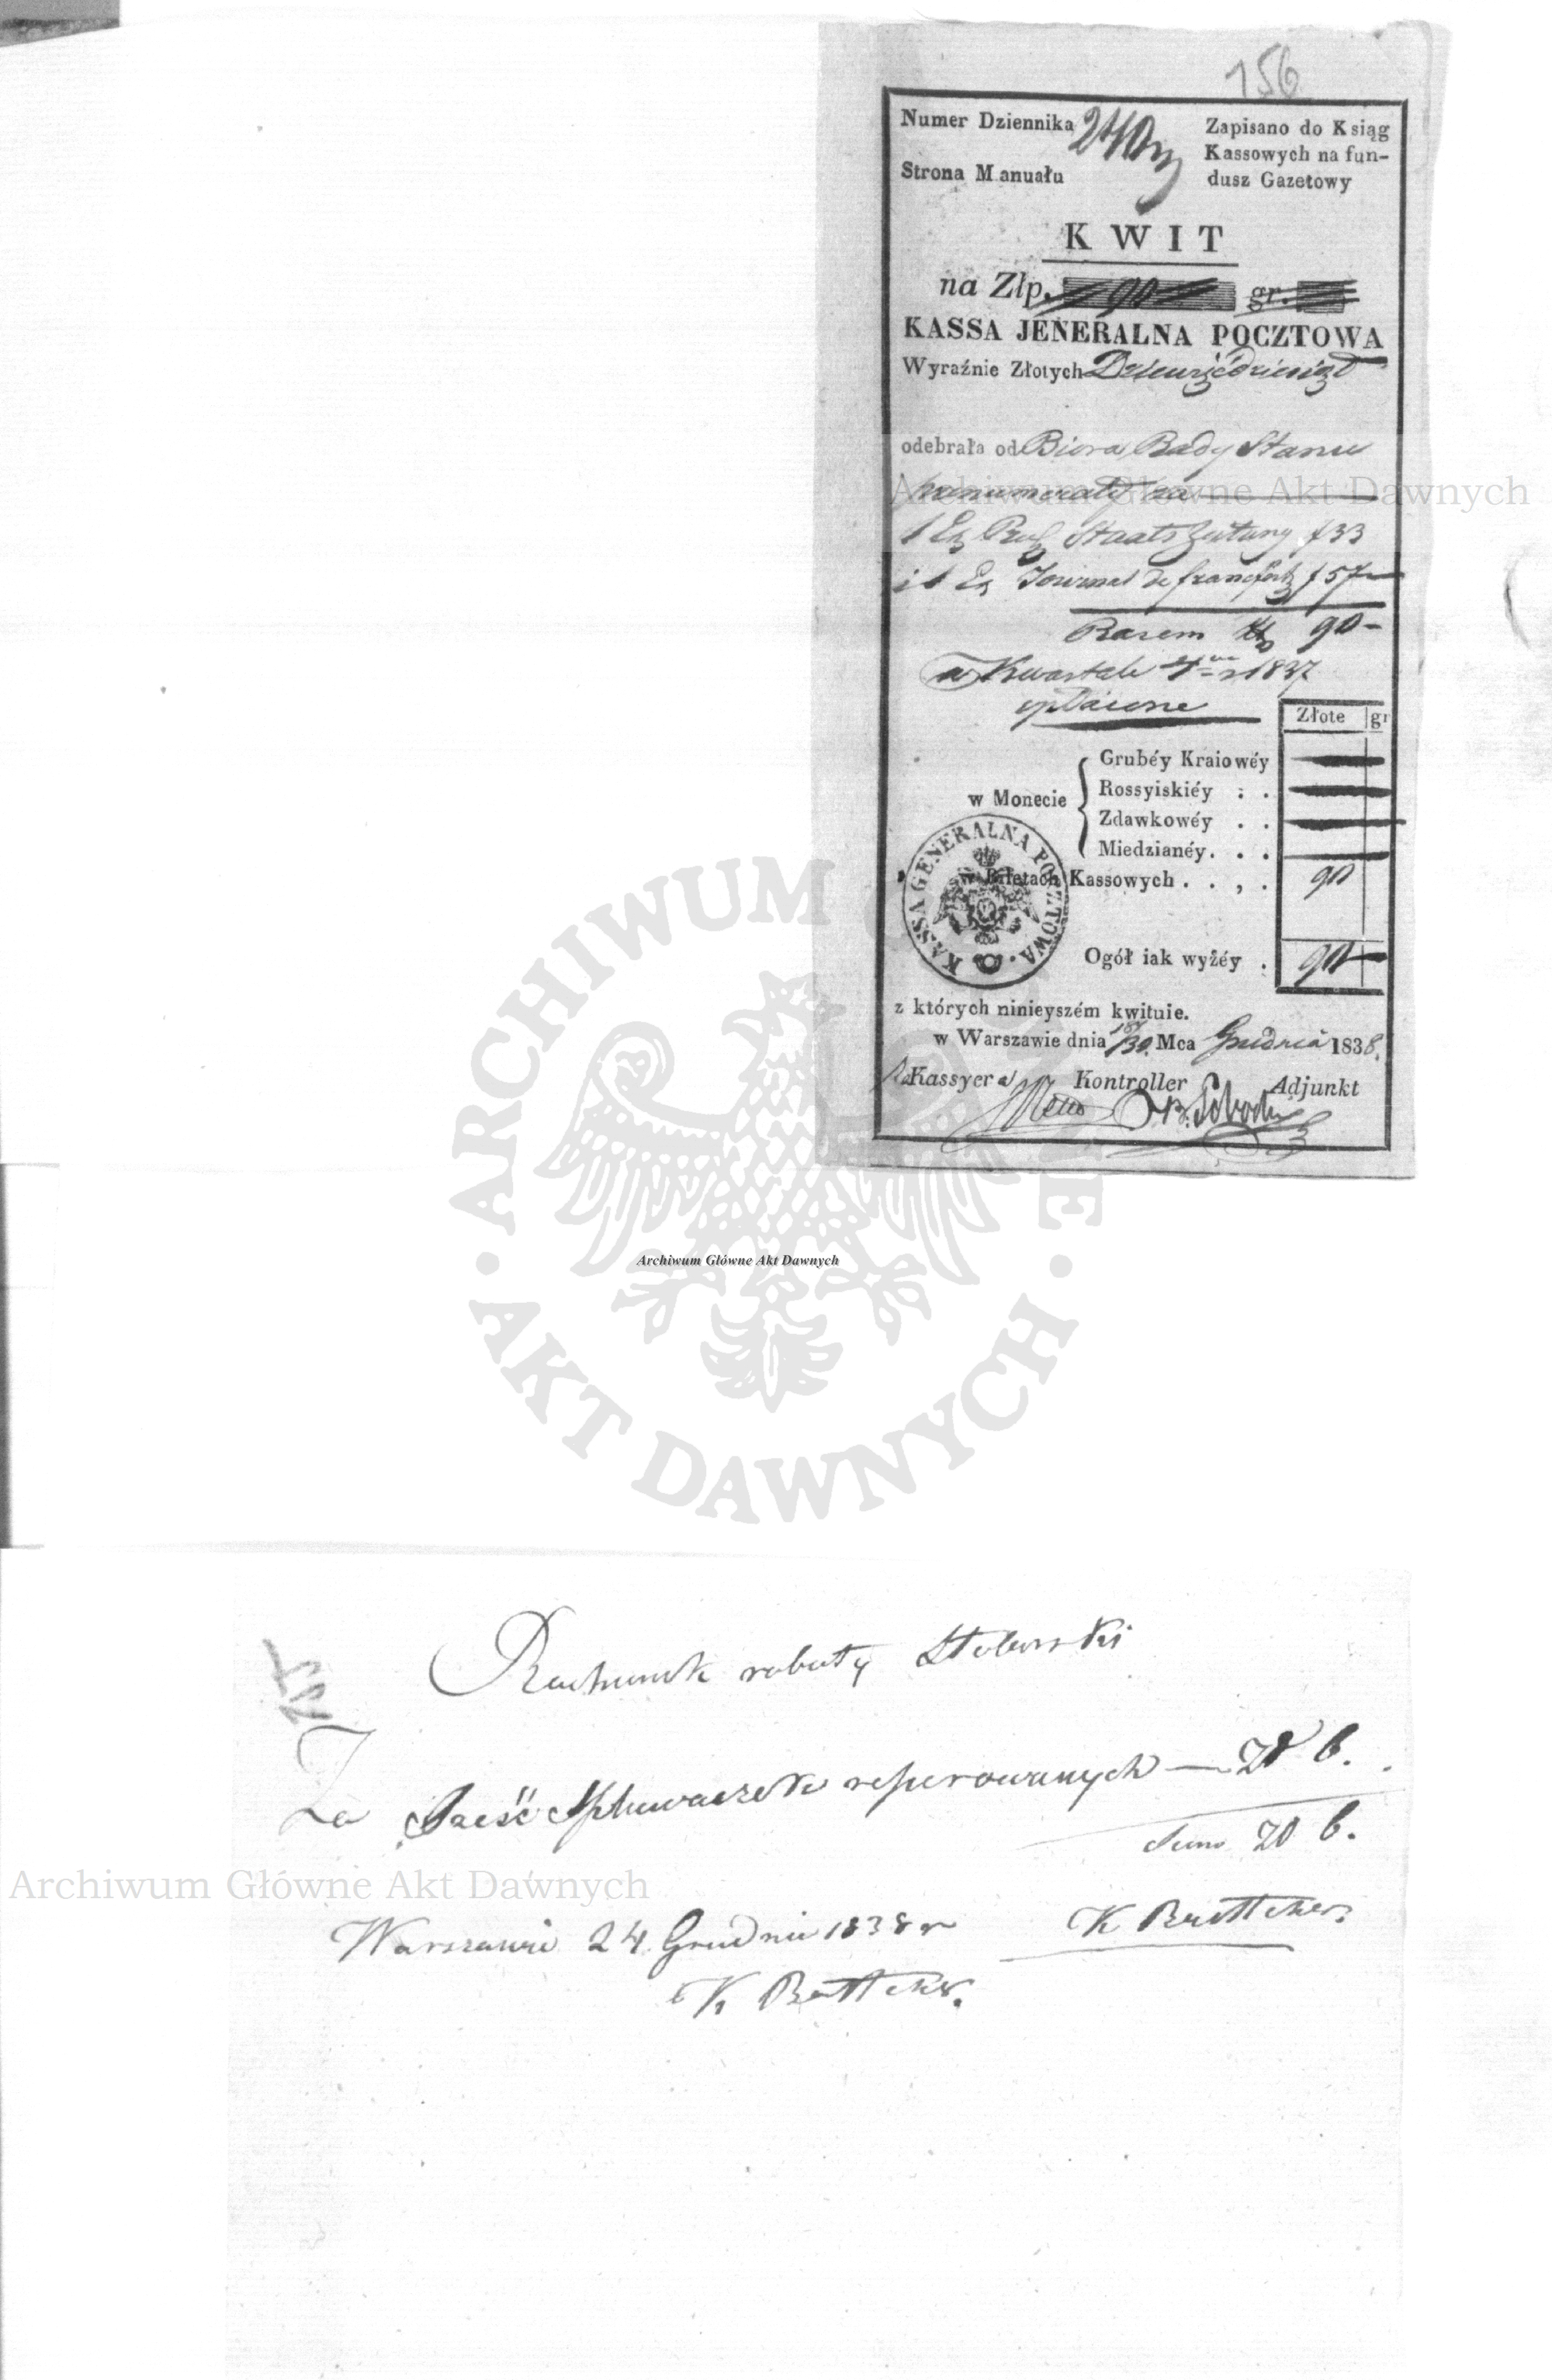 156
Numer Dziennika
Strona Manuału
Zapisano do Ksiąg
Kassowych na fun-
dusz Gazetowy
KWIT
na Złp. 90 gr.
KASSA JENERALNA POCZTOWA
Wyraźnie Złotych Dziewięćdziesiąt
odebrała od Biora Rady Stanu
prenumeraty za
1 Ex Staats Zeitung f 33
i 1 Ex Journal de francfort f 57
Razem 90
Kwartale 4 1837
Złote gr
w Monecie
Grubéy Kraiowéy
Rossyiskiéy : .
Zdawkowéy . .
Miedzianéy . . .
w Biletach Kassowych . . , . 90
Ogół iak wyżéy . 90
KASSA GENERALNA POCZTOWA
z których ninieyszém kwituie.
w Warszawie dnia 18/30 Mca Grudnia 1838.
Kassyer Kontroller Adjunkt
Archiwum Główne Akt Dawnych
ARCHIWUM GŁÓWNE AKT DAWNYCH
Archiwum Główne Akt Dawnych
157
Rachunek roboty
Za Sześć Spluwaczek reperowanych — 20 6.
Suma 20 6.
Archiwum Główne Akt Dawnych
Warszawie 24 Grudnia 1838 r